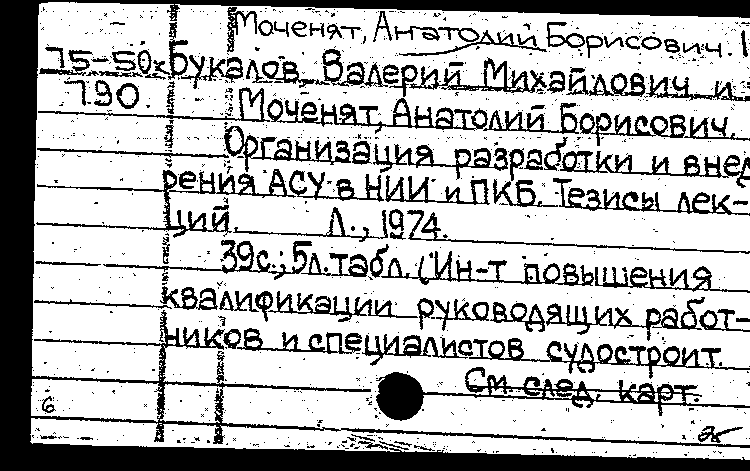 Моченят, Анатолий Борисович. 1
75-50х Букалов, Валерий Михайлович и
790. Моченят, Анатолий Борисович.
Организация разработки и внед
рения АСУ в НИИ и ПКБ. Тезисы лек-
ций. Л., 1974.
39с.; 5л.табл. (Ин-т повышения
квалификации руководящих работ-
ников и специалистов судостроит.
См. след. карт.
6